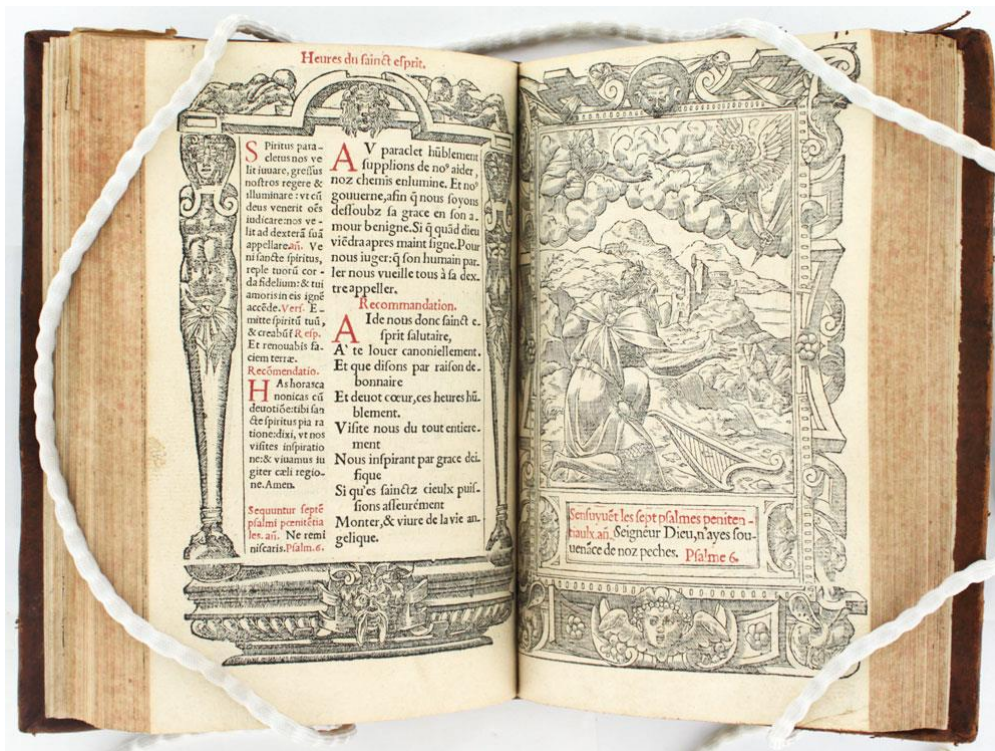 Heures du sainct esprit.
SPiritus para-
cletus nos ve
lit iuuare, gressus
nostros regere &
illuminare: vt cū
deus venerit oēs
iudicare: nos ve-
lit ad dexterā suā
appellare. añ. Ve
ni sancte spiritus,
reple tuorū cor-
da fidelium: & tui
amoris in eis ignē
accēde. Vers. E-
mitte spiritū tuū,
& creabūt̄ Resp.
Et renouabis fa-
ciem terræ.
Recōmendatio.
HAs horas ca
nonicas cū
deuotiōe: tibi san
cte spiritus pia ra
tione: dixi, vt nos
visites inspiratio
ne: & viuamus iu
giter cæli regio-
ne. Amen.
Sequuntur septē
psalmi pœnitētia
les. añ. Ne remi
niscaris. Psalm. 6.
AV paraclet hūblement
supplions de noꝰ aider,
noz chemis enlumine. Et noꝰ
gouuerne, afin q̄ nous soyons
dessoubz sa grace en son a-
mour benigne. Si q̄ quād dieu
viēdra apres maint signe. Pour
nous iuger: q̄ son humain par-
ler nous vueille tous à sa dex-
tre appeller.
Recommandation.
AIde nous donc sainct e-
sprit salutaire,
A' te louer canoniellement.
Et que disons par raison de-
bonnaire
Et deuot cœur, ces heures hū-
blement.
Visite nous du tout entiere-
ment
Nous inspirant par grace dei-
fique
Si qu'es sainctz cieulx puis-
sions asseurément
Monter, & viure de la vie an-
gelique.
Sensuyuēt les sept psalmes peniten-
tiaulx. añ. Seigneur Dieu, n'ayes sou-
uenāce de noz peches. Psalme 6.